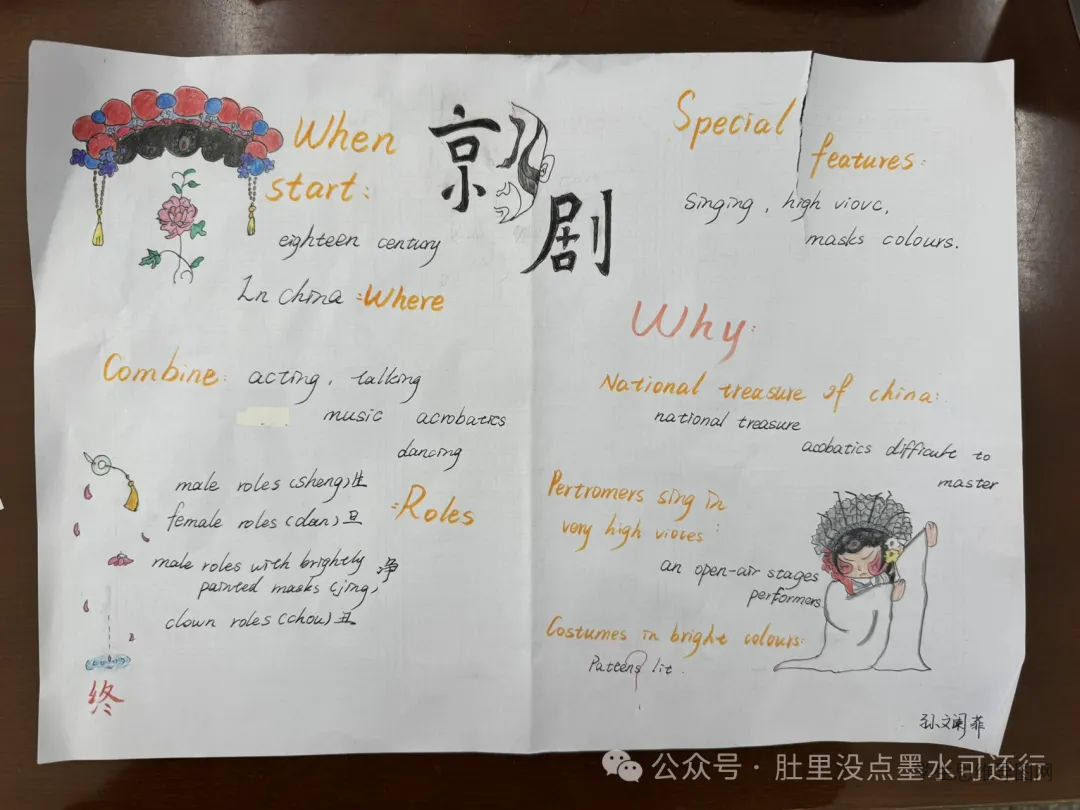 京剧
When
start:
eighteen century
In china :Where
Combine: acting, talking
music acrobatics
dancing
male roles (sheng) 生
female roles (dan) 旦
:Roles
male roles with brightly 净
painted masks (jing)
clown roles (chou) 丑
终
Special
features:
Singing, high viovc,
masks colours.
Why:
National treasure of china:
national treasure
acobatics difficult to
master
Pertromers sing in
very high vioces:
an open-air stages
performers
Costumes in bright colours:
Pattens lit.
孙文阑菲
公众号·肚里没点墨水可还行